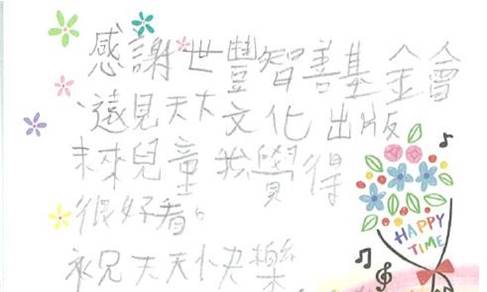 感謝世豐智善基金會
、遠見天下文化出版
未來兒童我覺得
很好看。
祝天天快樂。
HAPPY
TIME